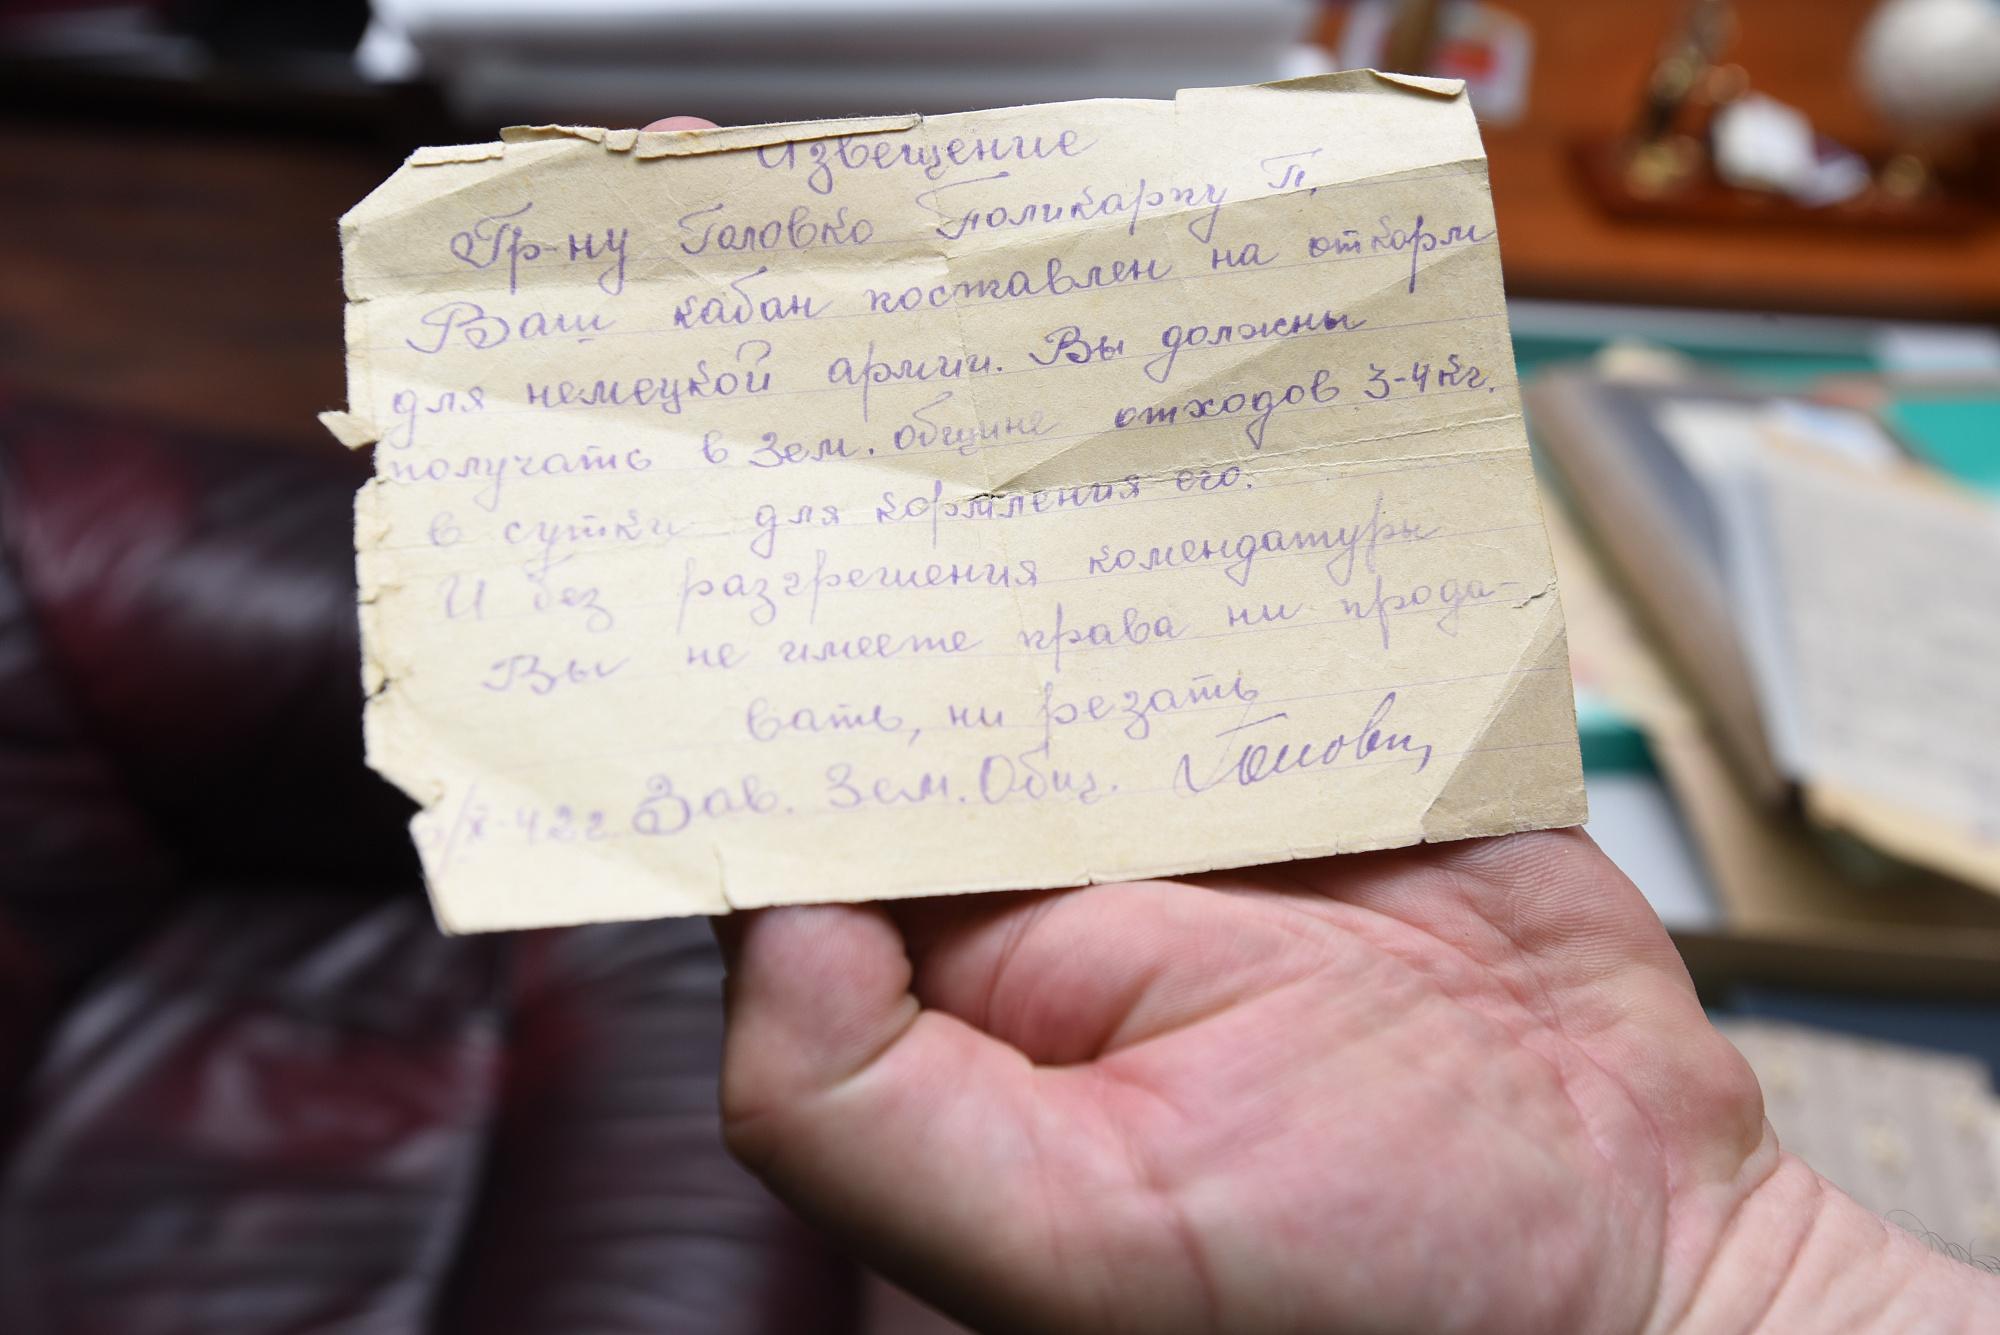 Извещение
Гр-ну Головко Поликарпу П.
Ваш кабан поставлен на откорм
для немецкой армии. Вы должны
получать в Зем. общине отходов 3-4 кг.
в сутки для кормления его.
И без разгрешения комендатуры
Вы не имеете права ни прода-
вать, ни резать
/X-42г Зав. Зем. Общ.